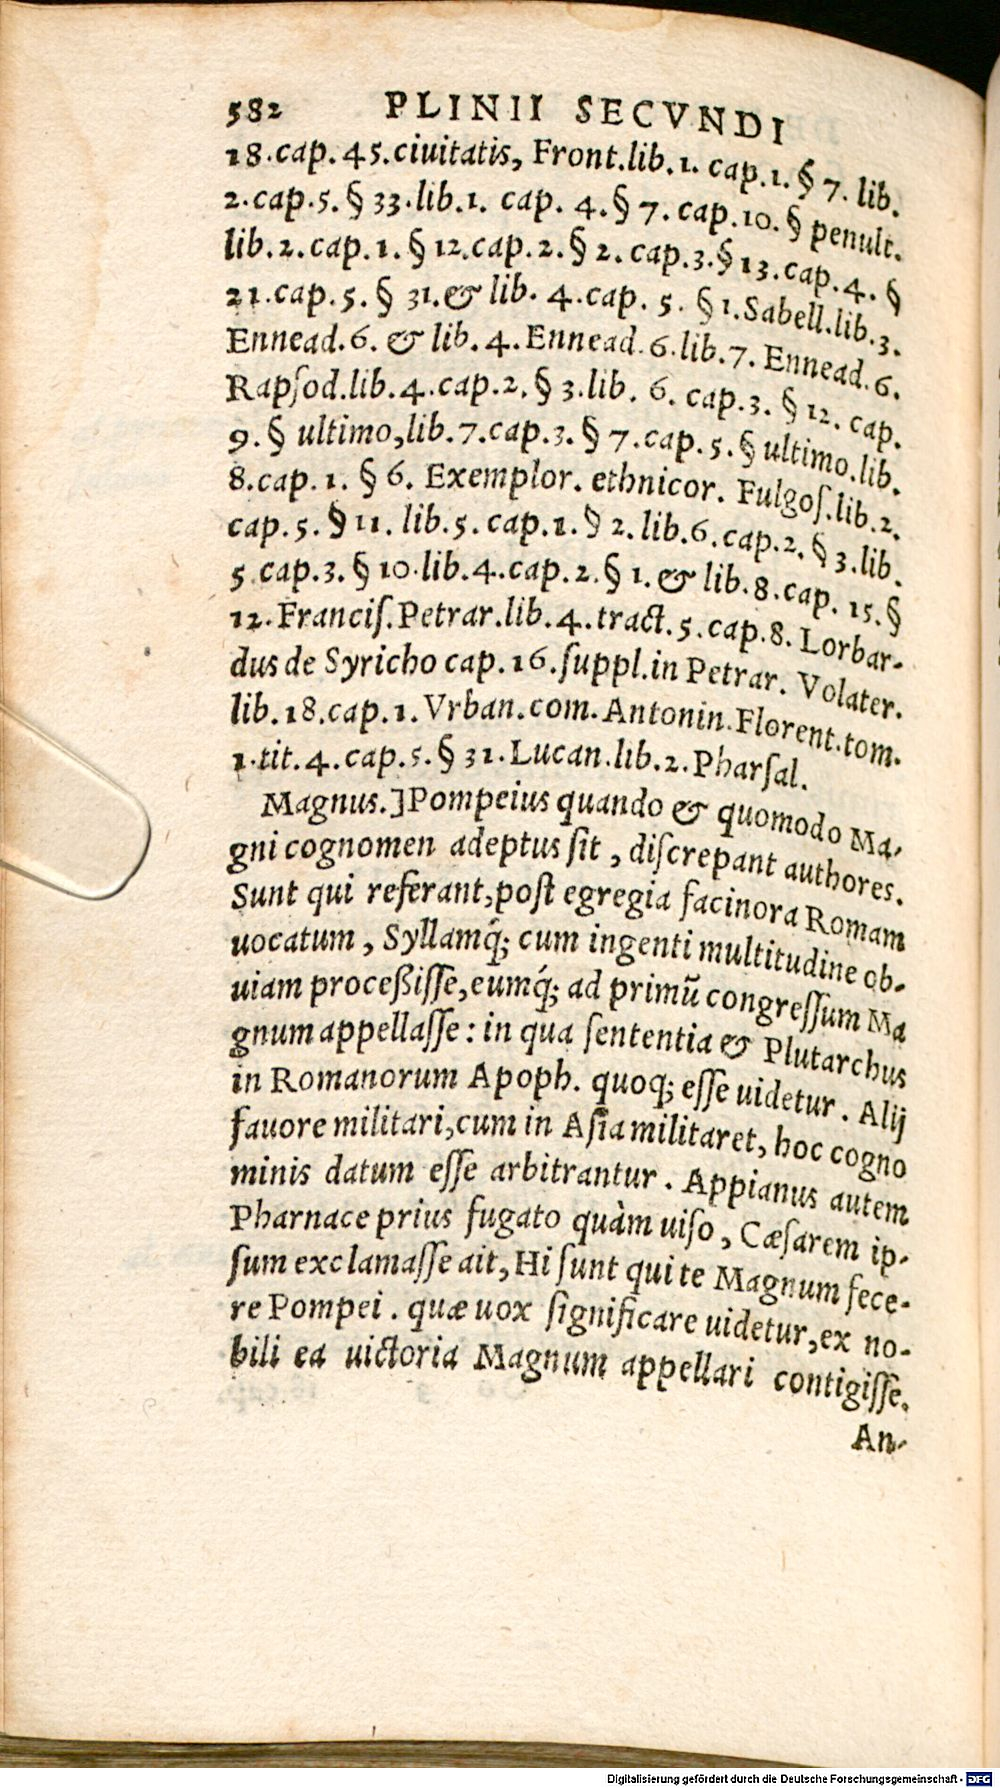 582 PLINII SECVNDI
18.cap. 45.ciuitatis, Front.lib. 1. cap. 1. § 7. lib.
2.cap.5. § 33.lib.1. cap. 4. § 7. cap.10. § penult.
lib.2.cap. 1. § 12.cap.2. § 2. cap.3.§ 13.cap.4. §
21.cap.5. § 31.& lib. 4.cap. 5. § 1.Sabell.lib.3.
Ennead.6. & lib. 4.Ennead.6.lib.7. Ennead.6.
Rapſod.lib.4.cap.2. § 3.lib. 6. cap.3. § 12. cap.
9. § ultimo,lib.7.cap.3. § 7.cap.5. § ultimo.lib.
8.cap. 1. § 6. Exemplor. ethnicor. Fulgoſ.lib.2.
cap.5. § 11. lib.5. cap.1. § 2. lib.6.cap.2. § 3.lib.
5.cap.3. § 10.lib.4.cap.2.§ 1. & lib.8.cap. 15.§
12.Franciſ.Petrar.lib.4.tract.5.cap.8. Lorbar-
dus de Syricho cap.16.ſuppl.in Petrar. Volater.
lib.18.cap.1.Vrban.com.Antonin.Florent.tom.
1.tit.4.cap.5.§ 31.Lucan.lib.2.Pharſal.
Magnus.]Pompeius quando & quomodo Ma-
gni cognomen adeptus ſit, diſcrepant authores.
Sunt qui referant,poſt egregia facinora Romam
uocatum, Syllamq́; cum ingenti multitudine ob-
uiam proceßiſſe,eumq́; ad primũ congreſſum Ma
gnum appellaſſe: in qua ſententia & Plutarchus
in Romanorum Apoph. quoq; eſſe uidetur. Alij
fauore militari,cum in Aſia militaret, hoc cogno
minis datum eſſe arbitrantur. Appianus autem
Pharnace prius fugato quàm uiſo, Cæſarem ip-
ſum exclamaſſe ait, Hi ſunt qui te Magnum fece-
re Pompei. quæ uox ſignificare uidetur,ex no-
bili ea uictoria Magnum appellari contigiſſe.
An-
Digitalisierung gefördert durch die Deutsche Forschungsgemeinschaft - DFG